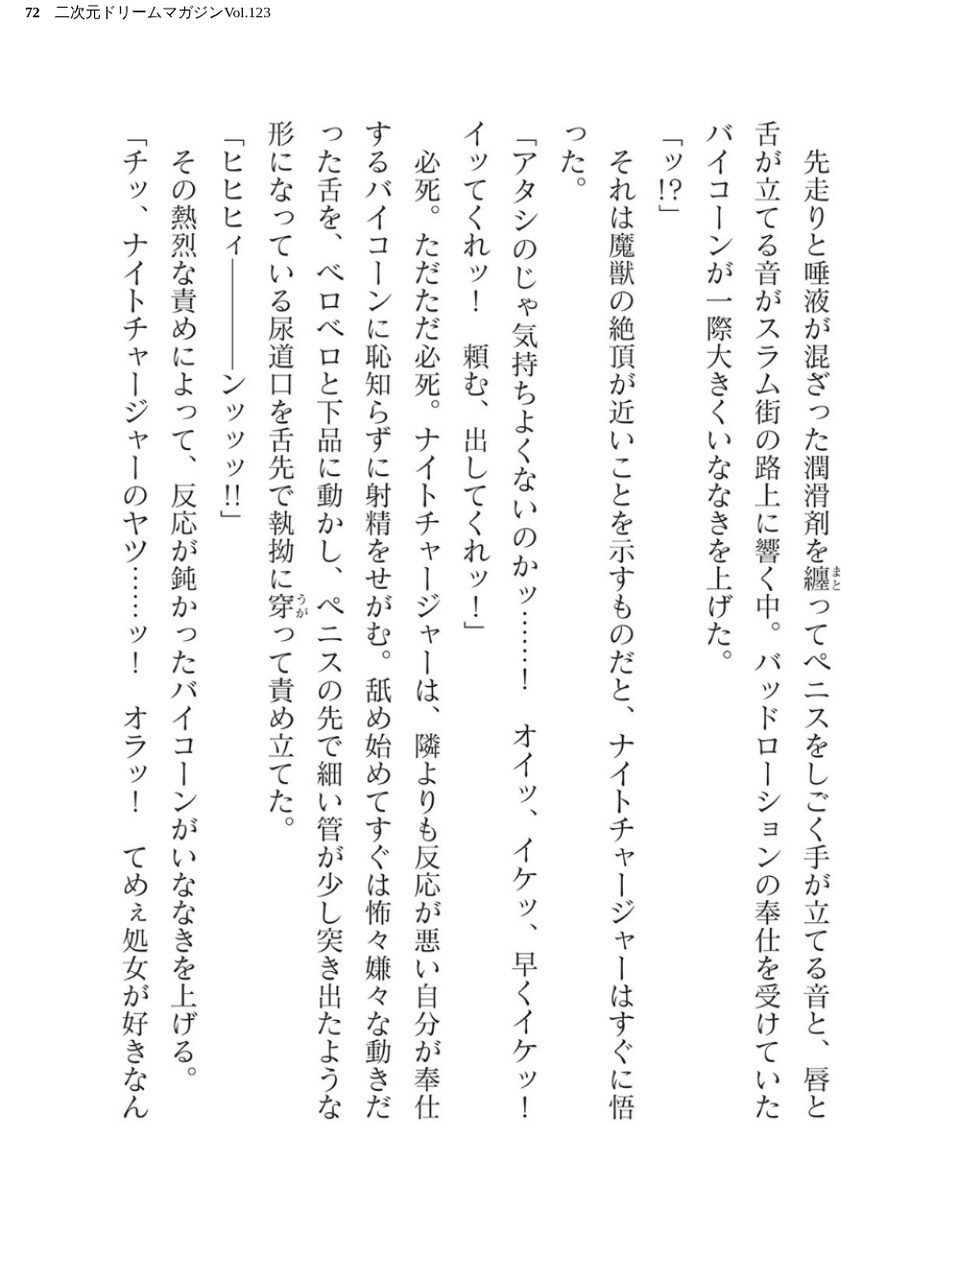 72 二次元ドリームマガジンVol.123
先走りと唾液が混ざった潤滑剤を纏ってペニスをしごく手が立てる音と、唇と
舌が立てる音がスラム街の路上に響く中。バッドローションの奉仕を受けていた
バイコーンが一際大きくいななきを上げた。
「ッ!?」
それは魔獣の絶頂が近いことを示すものだと、ナイトチャージャーはすぐに悟
った。
「アタシのじゃ気持ちよくないのかッ……！　オイッ、イケッ、早くイケッ！
イッてくれッ！　頼む、出してくれッ！」
必死。ただただ必死。ナイトチャージャーは、隣よりも反応が悪い自分が奉仕
するバイコーンに恥知らずに射精をせがむ。舐め始めてすぐは怖々嫌々な動きだ
った舌を、ベロベロと下品に動かし、ペニスの先で細い管が少し突き出たような
形になっている尿道口を舌先で執拗に穿って責め立てた。
「ヒヒヒィ――――ンッッッ!!」
その熱烈な責めによって、反応が鈍かったバイコーンがいななきを上げる。
「チッ、ナイトチャージャーのヤツ……ッ！　オラッ！　てめぇ処女が好きなん
まと
うが